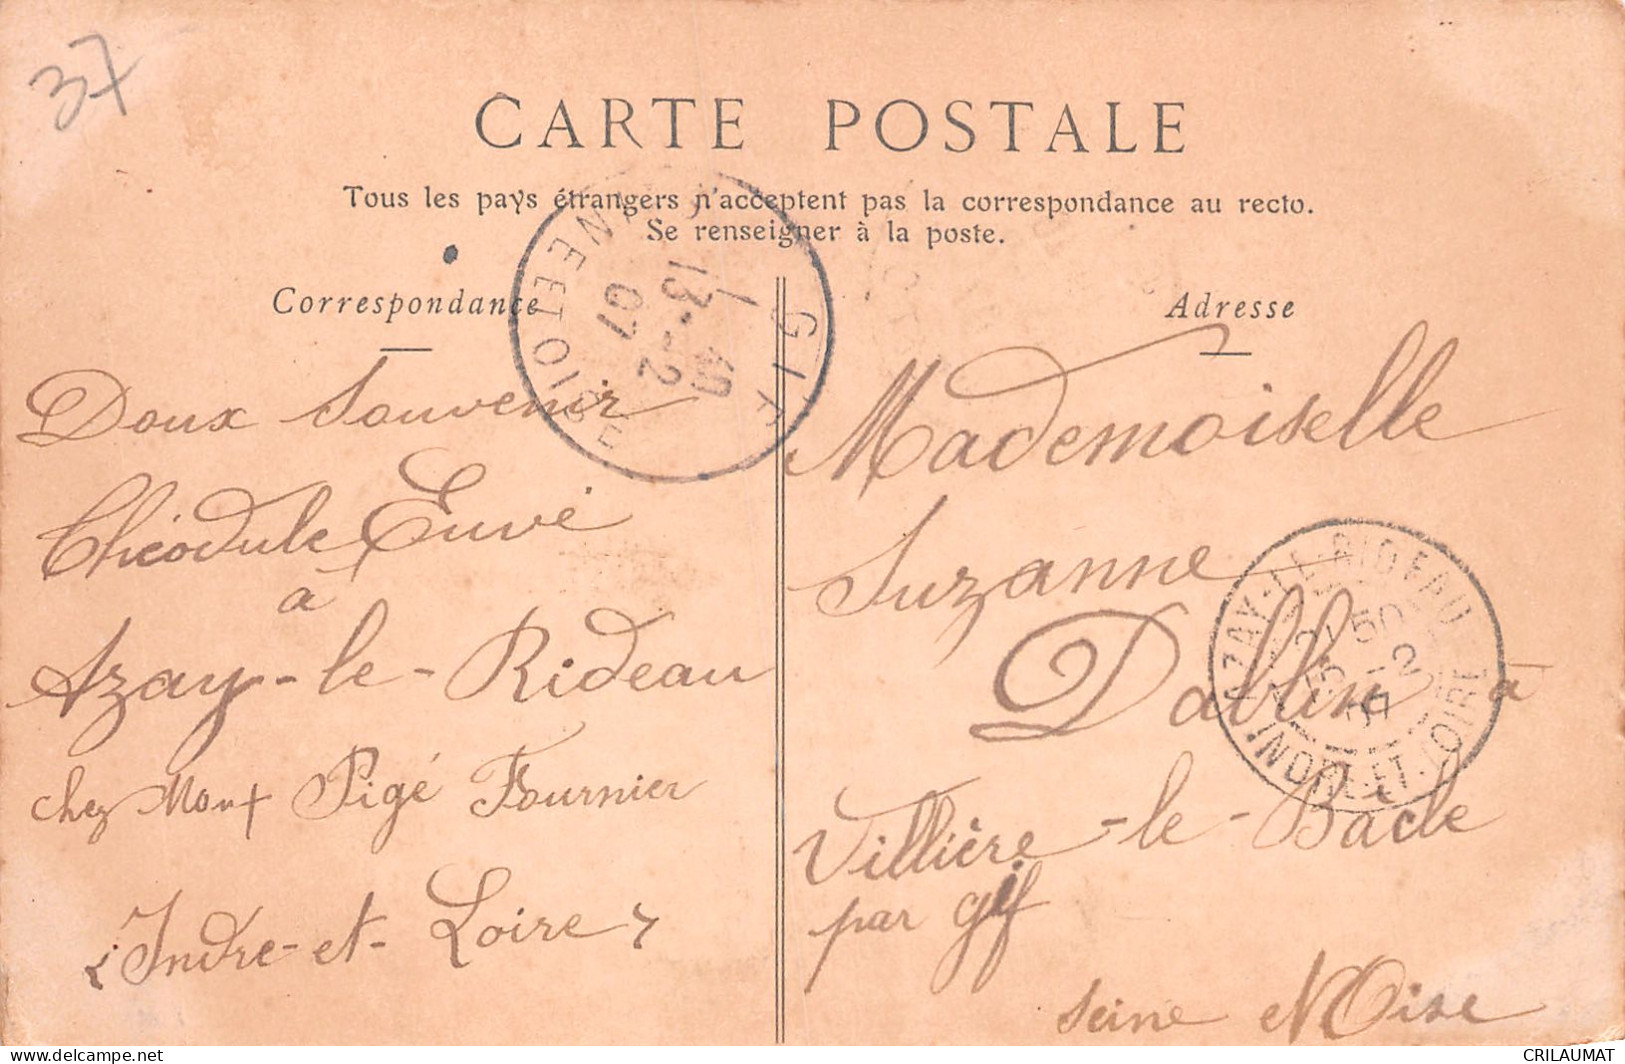 37
CARTE POSTALE
Tous les pays étrangers n'acceptent pas la correspondance au recto.
Se renseigner à la poste.
Correspondance
Adresse
GIF
SEINE ET OISE
13 -2
07
Doux Souvenir
Théodule Euvé
à
Azay-le-Rideau
chez Pigé Fournier
Indre-et-Loire
Mademoiselle
Suzanne
à
Villière-le-Bacle
par gif
Seine et Oise
AZAY-LE-RIDEAU
INDRE-ET-LOIRE
CRILAUMAT